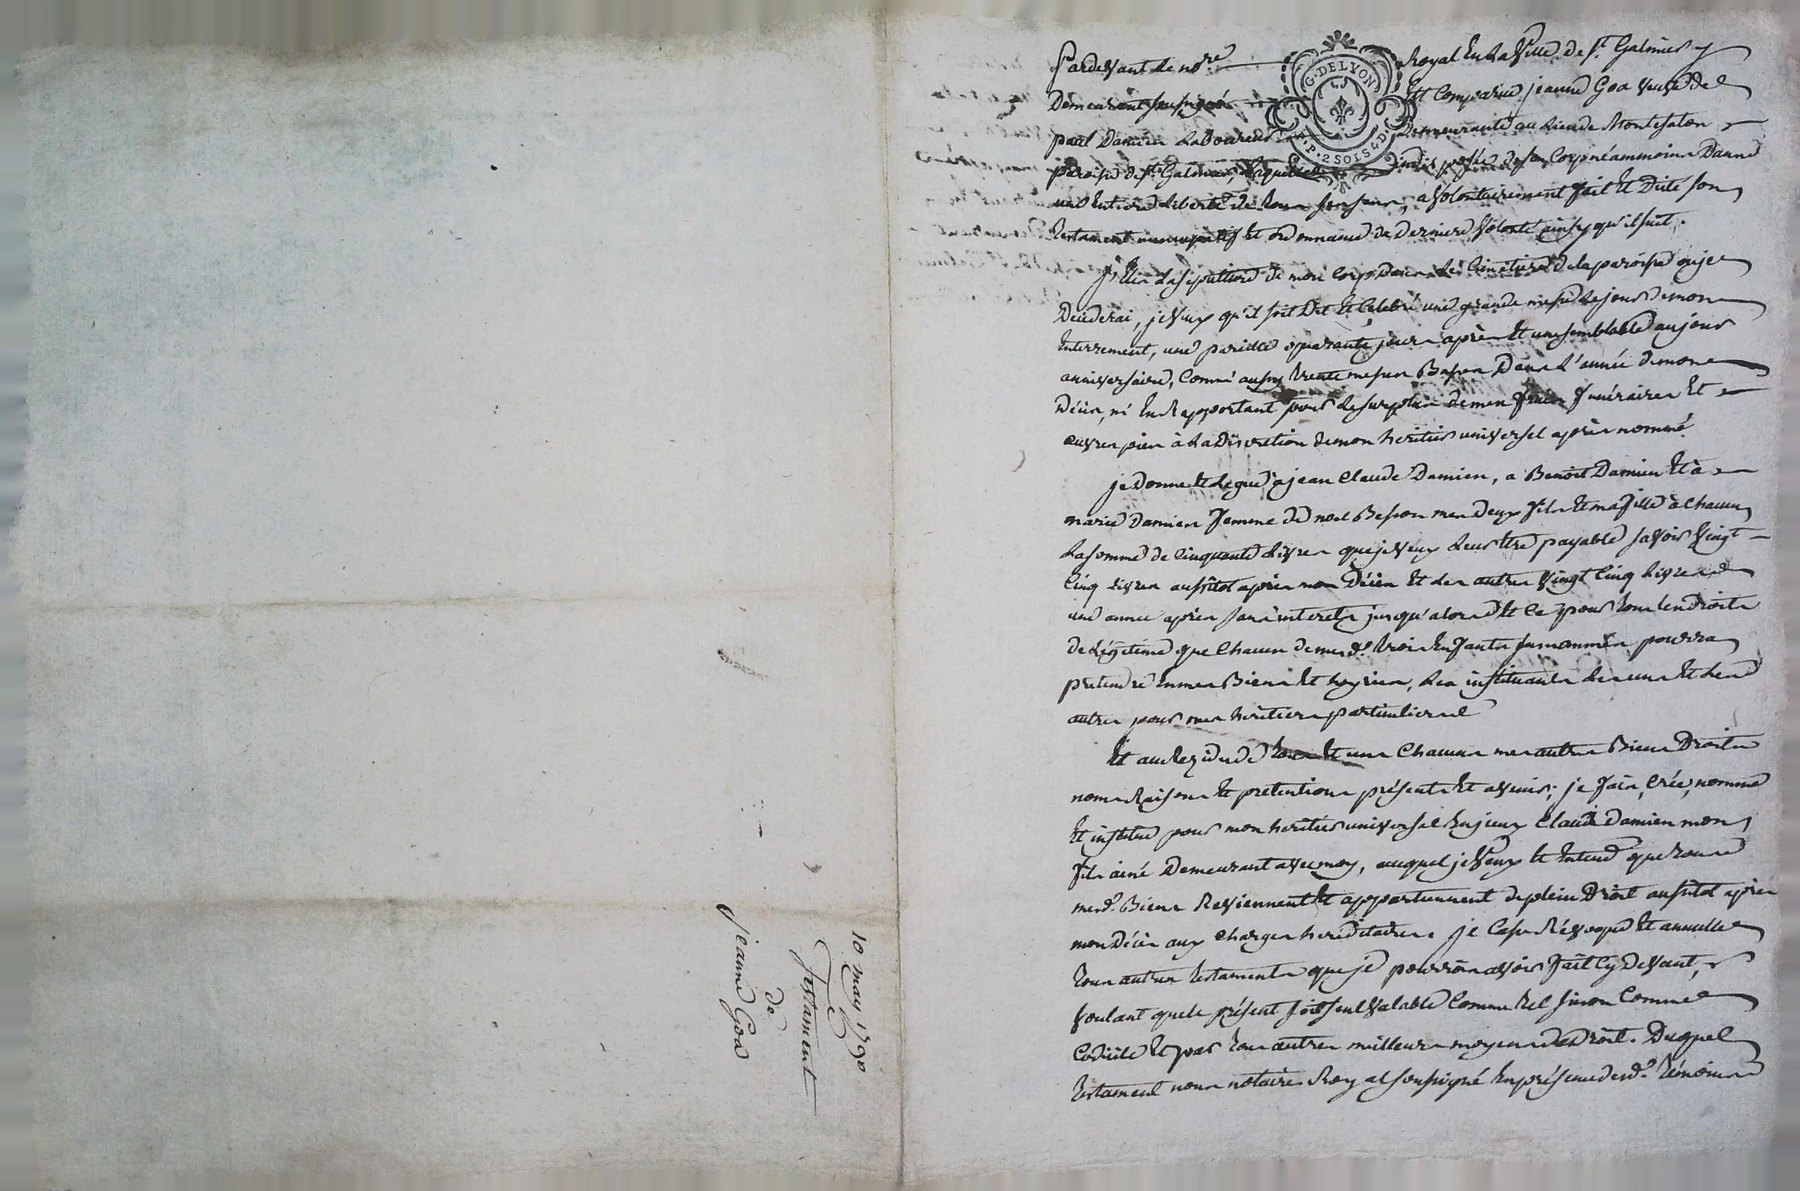 10 may 1790
Testament
de
jeanne Goa
Pardevant le no.re Royal En la Ville de S.t Galmier y
Demeurant soussigné Est Comparue jeanne Goa veuve de
paul Damien Laboureur Demeurante au lieu de Montefalon
paroisse de S.t Galmier, Laquelle indisposée de son Corp néammoins Dans
une Entiere Liberté de tous ses sens, a Volontairement fait Et Dicté son
testament nuncupatif Et ordonnance de Derniere Volonté ainsy qu'il suit.
J'Elis La sepulture de mon Corp Dans Le Cimetiere de la paroisse ou je
Decederai, je Veux qu'il soit Dit Et Celebré une grande messe Le jour de mon
Enterrement, une pareille quarante jours après Et une semblable au jour
anniversaire, Comme aussy trente messes Basses Dans L'année de mon
Décès, m'En Rapportant pour Le surplus de mes frais funéraires Et
œuvres pies à La Discretion de mon heritier universel après nommé
je Donne Et Legue à jean Claude Damien, a Benoit Damien Et à
marie Damien femme de noel Besson mes deux fils Et ma fille à Chacun
La somme de Cinquante Livres que je Veux Leur Etre payable savoir Vingt
Cinq Livres aussitot après mon Décès Et Les autres Vingt Cinq Livres
une année après sans interets jusqu'alors Et Ce pour tous Les droits
de Légitime que Chacun de mes d.s trois Enfants susnommés pourra
pretendre En mes Biens Et hoyries, Les instituants Les uns Et Les
autres pour mes héritiers particuliers
Et au Rezidu de tous Et uns Chacuns mes autres Biens Droits
noms Raisons Et pretentions présents Et avenir, je fais, Crée, nomme
Et institue pour mon heritier universel Claude Damien mon
fils ainé Demeurant avec moy, auquel je Veux Et Entend que tous
mes d.s Biens Reviennent Et appartiennent de plein Droit aussitot après
mon Décès aux Charges hereditaires. je Casse Révoque Et annulle
tous autres testaments que je pourrois avoir fait Cy Devant,
Voulant que le présent soit seul Valable Comme tel sinon Comme
Codicile Et par tous autres meilleurs moyens de Droit. Duquel
testament nous notaire Royal soussigné En présence des d.s témoins
G. DE LYON
P. P. 2 SOIS 4 D.